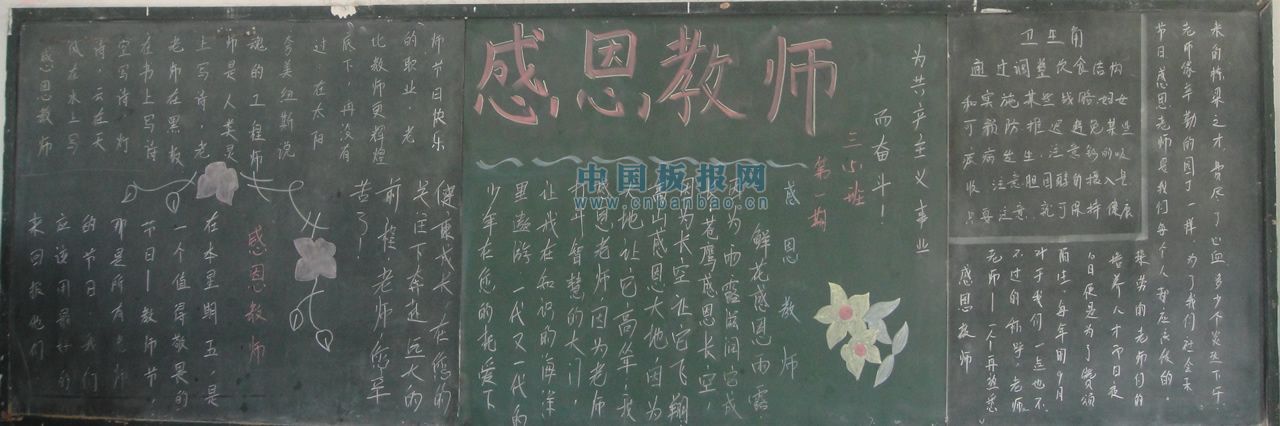 感恩教师
为共产主义事业
而奋斗!
三小班
第一期
感恩教师
风在水上写
诗,云在天
空写诗,灯
在书上写诗
老师在黑板
上写诗,老
师是人类灵
魂的工程师
夸美纽斯说
过 在太阳
底下,再没有
比教师更辉煌
的职业.老
师节日快乐
感恩教师
在本星期五,是
一个值得敬畏的
节日——教师节,
那是所有老师
的节日.我们
应该用最好的
来回报他们
感恩教师
鲜花感恩雨露
因为雨露滋润它成
长苍鹰感恩长空,
因为长空让它飞翔
高山感恩大地因为
大地让它高耸;我
感恩老师因为老师
打开智慧的大门,
让我在知识的海洋
里遨游.一代又一代的
少年在您的托爱下
健康成长.在您的
关注下奔进远大的
前程.老师您辛
苦了!
中国板报网
www.cnbanbao.cn
卫生角
通过调整饮食结构
和实施某些战略,妇女
可预防推迟避免某些
疾病发生,注意钙的吸
收 注意胆固醇的摄入
只要注意.就可保持健康
感恩教师
老师——一个再熟悉
不过的称呼,老师
对于我们一点也不
陌生.每年的9月
10日便是为了赞颂
培养人才而日夜
操劳的老师们的
节日.感恩老师是我们每个人都应应该的.
老师像辛勤的园丁一样,为了我们社会主
未的栋梁之才,费尽了心血多少个炎热下午.